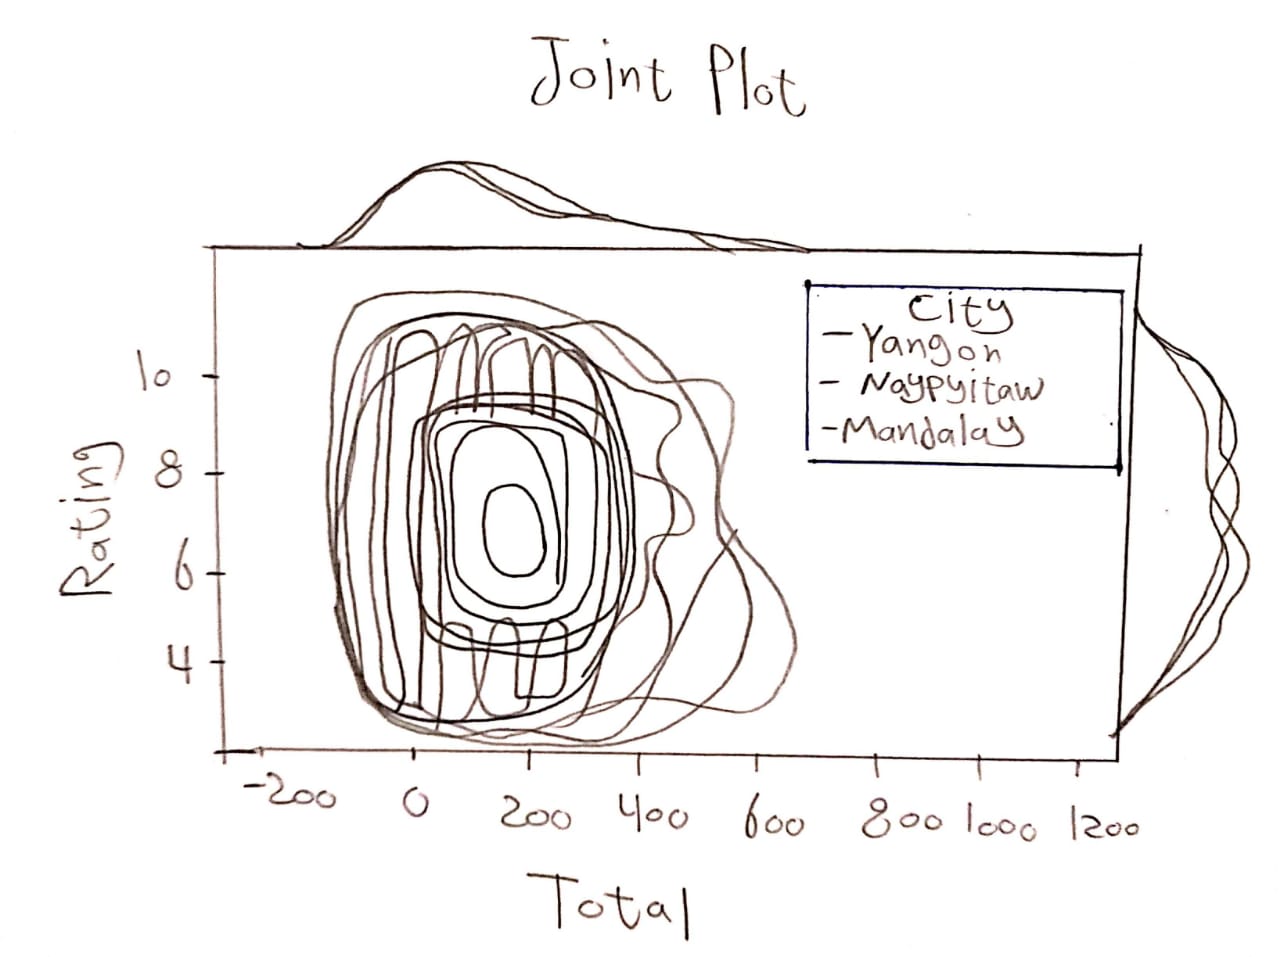 Joint Plot
City
— Yangon
- Naypyitaw
- Mandalay
10
8
6
4
Rating
-200 0 200 400 600 800 1000 1200
Total